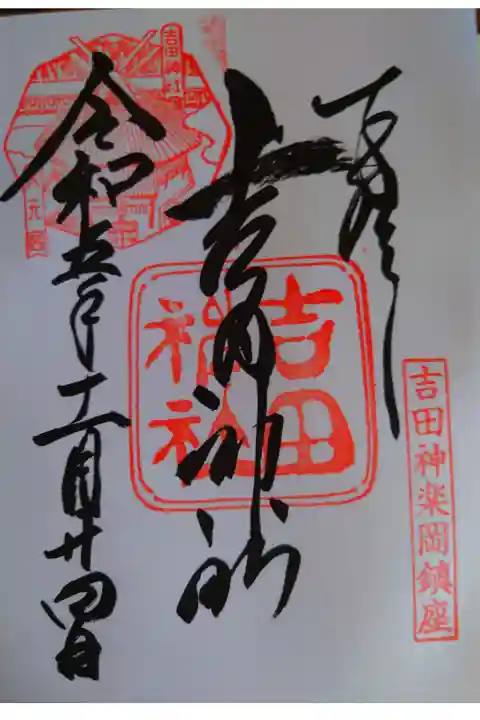 奉拝
吉田神楽岡鎮座
吉田神社
吉田
神社
令和五年十一月廿四日
吉田神社
大元宮